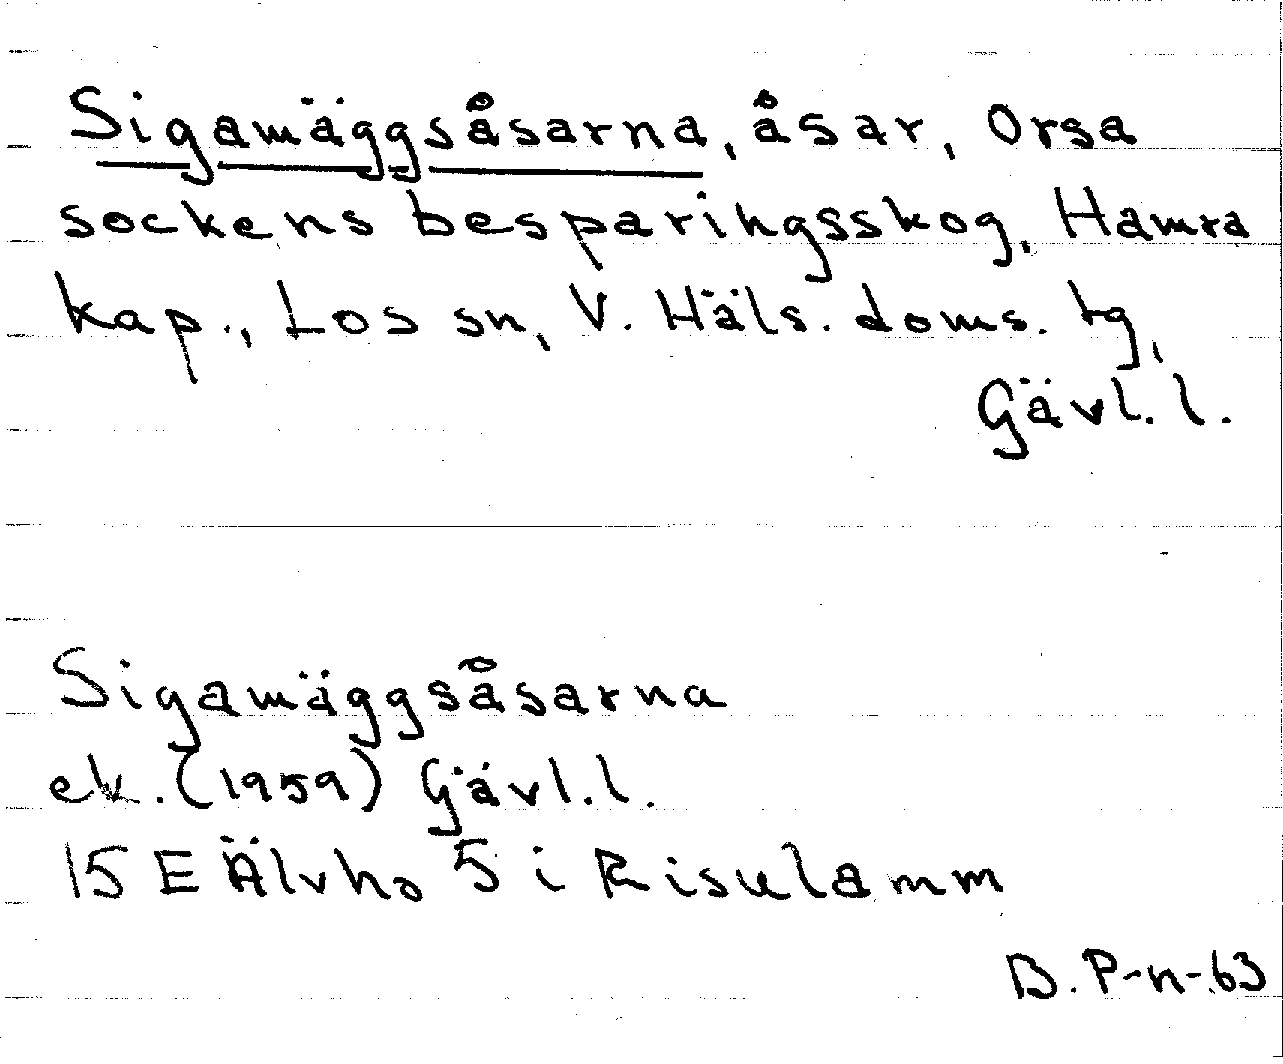 Sigamäggsåsarna, åsar, Orsa
sockens besparingsskog, Hamra
kap., Los sn, V. Häls. doms. tg,
Gävl. l.
Sigamäggsåsarna
ek. (1959) Gävl. l.
15 E Älvho 5 i Risulamm
B. P-n-63